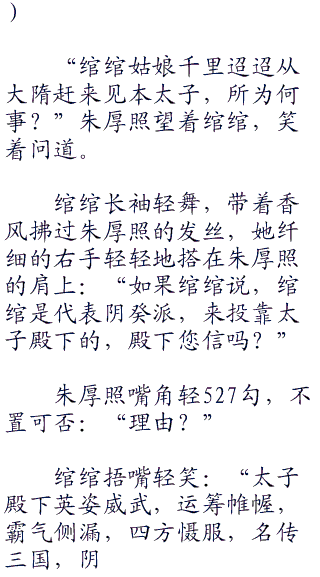 ）
“绾绾姑娘千里迢迢从
大隋赶来见本太子，所为何
事？”朱厚照望着绾绾，笑
着问道。
绾绾长袖轻舞，带着香
风拂过朱厚照的发丝，她纤
细的右手轻轻地搭在朱厚照
的肩上：“如果绾绾说，绾
绾是代表阴癸派，来投靠太
子殿下的，殿下您信吗？”
朱厚照嘴角轻527勾，不
置可否：“理由？”
绾绾捂嘴轻笑：“太子
殿下英姿威武，运筹帷幄，
霸气侧漏，四方慑服，名传
三国，阴